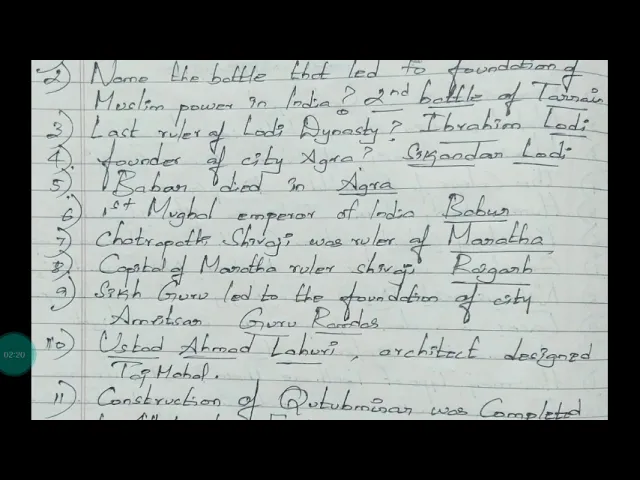 2) Name the battle that led to foundation of
Muslim power in India? 2nd battle of Tarrain
3) Last ruler of Lodi Dynasty? Ibrahim Lodi
4) founder of city Agra? Sikandar Lodi
5) Babar died in Agra
6) 1st Mughal emperor of India Babur
7) Chatrapathi Shivaji was ruler of Maratha
8) Capital of Maratha ruler shivaji Raigarh
9) Sikh Guru led to the foundation of city
Amritsar Guru Ramdas
10) Ustad Ahmad Lahuri, architect designed
Taj Mahal.
11) Construction of Qutubminar was Completed
02:20